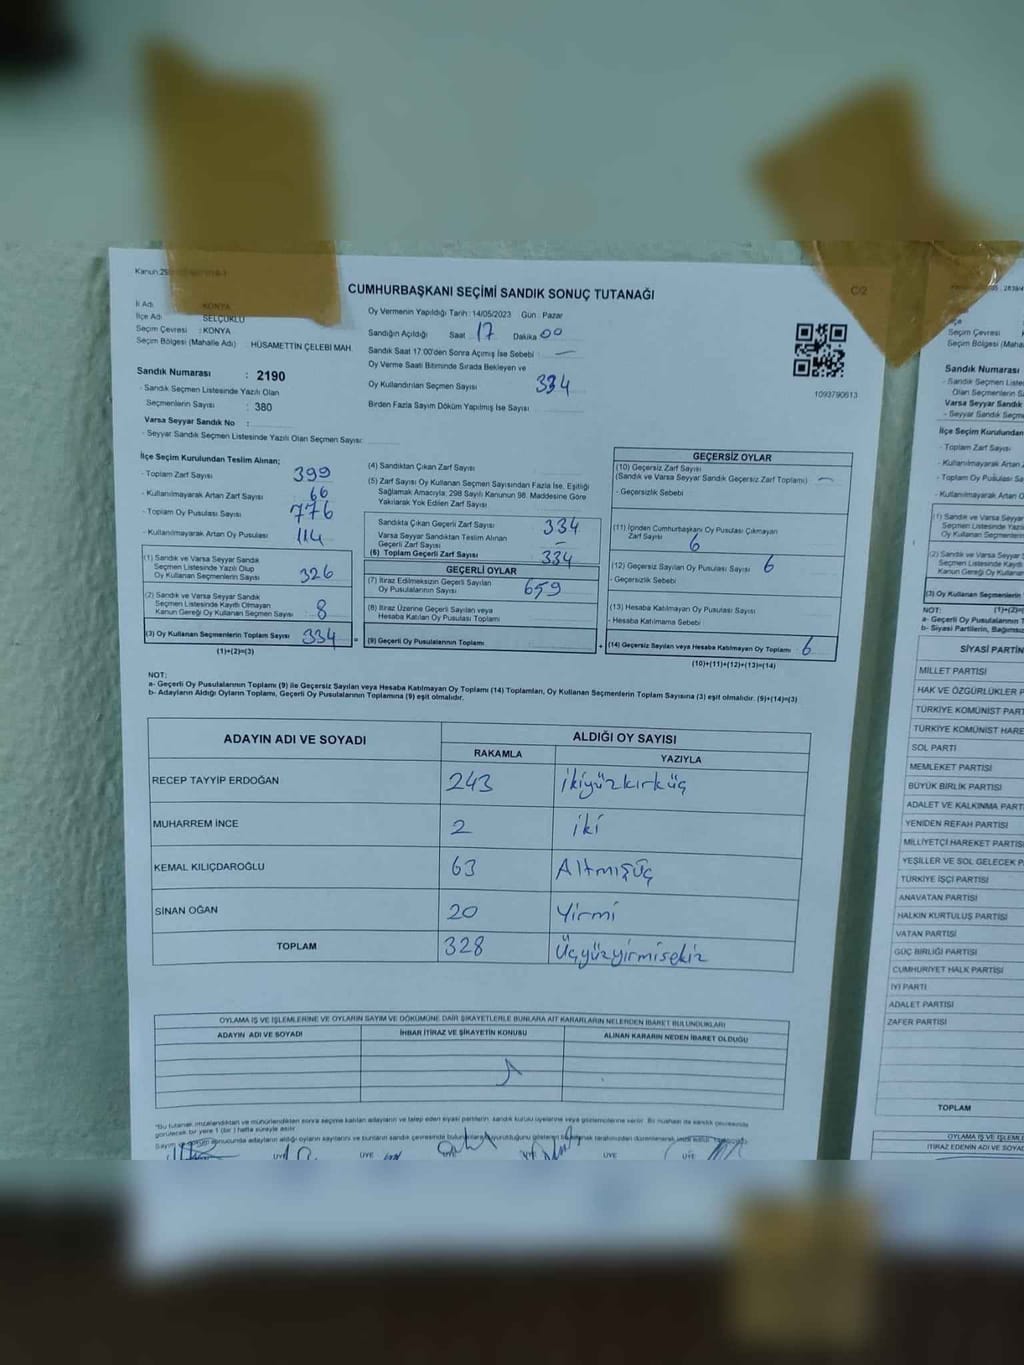 CUMHURBAŞKANI SEÇİMİ SANDIK SONUÇ TUTANAĞI
C/2
İl Adı : KONYA
İlçe Adı : SELÇUKLU
Seçim Çevresi : KONYA
Seçim Bölgesi (Mahalle Adı) : HÜSAMETTİN ÇELEBİ MAH.
Sandık Numarası : 2190
- Sandık Seçmen Listesinde Yazılı Olan
Seçmenlerin Sayısı : 380
Varsa Seyyar Sandık No :
- Seyyar Sandık Seçmen Listesinde Yazılı Olan Seçmen Sayısı:
Oy Vermenin Yapıldığı Tarih : 14/05/2023 Gün : Pazar
Sandığın Açıldığı Saat 17 Dakika 00
Sandık Saat 17.00'den Sonra Açımış İse Sebebi : —
Oy Verme Saati Bitiminde Sırada Bekleyen ve
Oy Kullandırılan Seçmen Sayısı 334
Birden Fazla Sayım Döküm Yapılmış İse Sayısı :
1093790613
İlçe Seçim Kurulundan Teslim Alınan;
- Toplam Zarf Sayısı 399
- Kullanılmayarak Artan Zarf Sayısı : 66
- Toplam Oy Pusulası Sayısı : 776
- Kullanılmayarak Artan Oy Pusulası : 114
(1) Sandık ve Varsa Seyyar Sandık
Seçmen Listesinde Yazılı Olup
Oy Kullanan Seçmenlerin Sayısı : 326
(2) Sandık ve Varsa Seyyar Sandık
Seçmen Listesinde Kayıtlı Olmayan
Kanun Gereği Oy Kullanan Seçmen Sayısı : 8
(3) Oy Kullanan Seçmenlerin Toplam Sayısı 334 =
(1)+(2)=(3)
(4) Sandıktan Çıkan Zarf Sayısı
(5) Zarf Sayısı Oy Kullanan Seçmen Sayısından Fazla İse, Eşitliği
Sağlamak Amacıyla, 298 Sayılı Kanunun 98. Maddesine Göre
Yakılarak Yok Edilen Zarf Sayısı
Sandıkta Çıkan Geçerli Zarf Sayısı 334
Varsa Seyyar Sandıktan Teslim Alınan
Geçerli Zarf Sayısı –
(6) Toplam Geçerli Zarf Sayısı 334
GEÇERLİ OYLAR
(7) İtiraz Edilmeksizin Geçerli Sayılan
Oy Pusulalarının Sayısı : 659
(8) İtiraz Üzerine Geçerli Sayılan veya
Hesaba Katılan Oy Pusulası Toplamı :
(9) Geçerli Oy Pusulalarının Toplamı : +
GEÇERSİZ OYLAR
(10) Geçersiz Zarf Sayısı
(Sandık ve Varsa Seyyar Sandık Geçersiz Zarf Toplamı) —
- Geçersizlik Sebebi
(11) İçinden Cumhurbaşkanı Oy Pusulası Çıkmayan
Zarf Sayısı 6
(12) Geçersiz Sayılan Oy Pusulası Sayısı 6
- Geçersizlik Sebebi
(13) Hesaba Katılmayan Oy Pusulası Sayısı
- Hesaba Katılmama Sebebi
(14) Geçersiz Sayılan veya Hesaba Katılmayan Oy Toplamı : 6
(10)+(11)+(12)+(13)=(14)
NOT:
a- Geçerli Oy Pusulalarının Toplamı (9) ile Geçersiz Sayılan veya Hesaba Katılmayan Oy Toplamı (14) Toplamları, Oy Kullanan Seçmenlerin Toplam Sayısına (3) eşit olmalıdır. (9)+(14)=(3)
b- Adayların Aldığı Oyların Toplamı, Geçerli Oy Pusulalarının Toplamına (9) eşit olmalıdır.
ADAYIN ADI VE SOYADI ALDIĞI OY SAYISI
RAKAMLA YAZIYLA
RECEP TAYYİP ERDOĞAN 243 ikiyüzkırküç
MUHARREM İNCE 2 iki
KEMAL KILIÇDAROĞLU 63 Altmışüç
SİNAN OĞAN 20 Yirmi
TOPLAM 328 Üçyüzyirmisekiz
OYLAMA İŞ VE İŞLEMLERİNE VE OYLARIN SAYIM VE DÖKÜMÜNE DAİR ŞİKAYETLERLE BUNLARA AİT KARARLARIN NELERDEN İBARET BULUNDUKLARI
ADAYIN ADI VE SOYADI İHBAR İTİRAZ VE ŞİKAYETİN KONUSU ALINAN KARARIN NEDEN İBARET OLDUĞU
ÜYE ÜYE ÜYE ÜYE
Seçim Çevresi
Seçim Bölgesi (Mahalle Adı
Sandık Numarası
- Sandık Seçmen Liste
Olan Seçmenlerin Sayısı
Varsa Seyyar Sandık
- Seyyar Sandık Seçmen
İlçe Seçim Kurulundan
- Toplam Zarf Sayısı
- Kullanılmayarak Artan
- Toplam Oy Pusulası
- Kullanılmayarak Artan O
(1) Sandık ve Varsa Seyyar
Seçmen Listesinde Yazılı
Oy Kullanan Seçmenlerin
(2) Sandık ve Varsa Seyyar
Seçmen Listesinde Kayıtlı
Kanun Gereği Oy Kullanan
(3) Oy Kullanan Seçmenlerin
NOT: (1)+(2)=
a- Geçerli Oy Pusulalarının T
b- Siyasi Partilerin, Bağımsız
SİYASİ PARTİN
MİLLET PARTİSİ
HAK VE ÖZGÜRLÜKLER P
TÜRKİYE KOMÜNİST PART
TÜRKİYE KOMÜNİST HARE
SOL PARTİ
MEMLEKET PARTİSİ
BÜYÜK BİRLİK PARTİSİ
ADALET VE KALKINMA PARTİ
YENİDEN REFAH PARTİSİ
MİLLİYETÇİ HAREKET PARTİSİ
YEŞİLLER VE SOL GELECEK P
TÜRKİYE İŞÇİ PARTİSİ
ANAVATAN PARTİSİ
HALKIN KURTULUŞ PARTİSİ
VATAN PARTİSİ
GÜÇ BİRLİĞİ PARTİSİ
CUMHURİYET HALK PARTİSİ
İYİ PARTİ
ADALET PARTİSİ
ZAFER PARTİSİ
TOPLAM
OYLAMA İŞ VE İŞLEML
İTİRAZ EDENİN ADI VE SOYAD